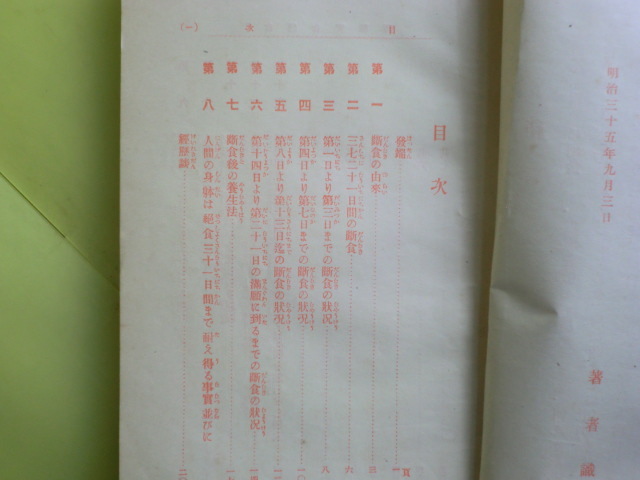 明治三十五年九月三日
著者識
目次
(一)
目次
頁
發端 一
第一 斷食の由來 三
第二 三七二十一日間の斷食 六
第三 第一日より第三日までの斷食の狀况 八
第四 第四日より第七日までの斷食の狀况 一〇
第五 第八日より第十三日迄の斷食の狀况
第六 第十四日より第二十一日の滿願に到るまでの斷食の狀况
第七 斷食後の養生法
第八 人間の身躰は絕食三十一日間まで耐え得る事實並びに
經驗談